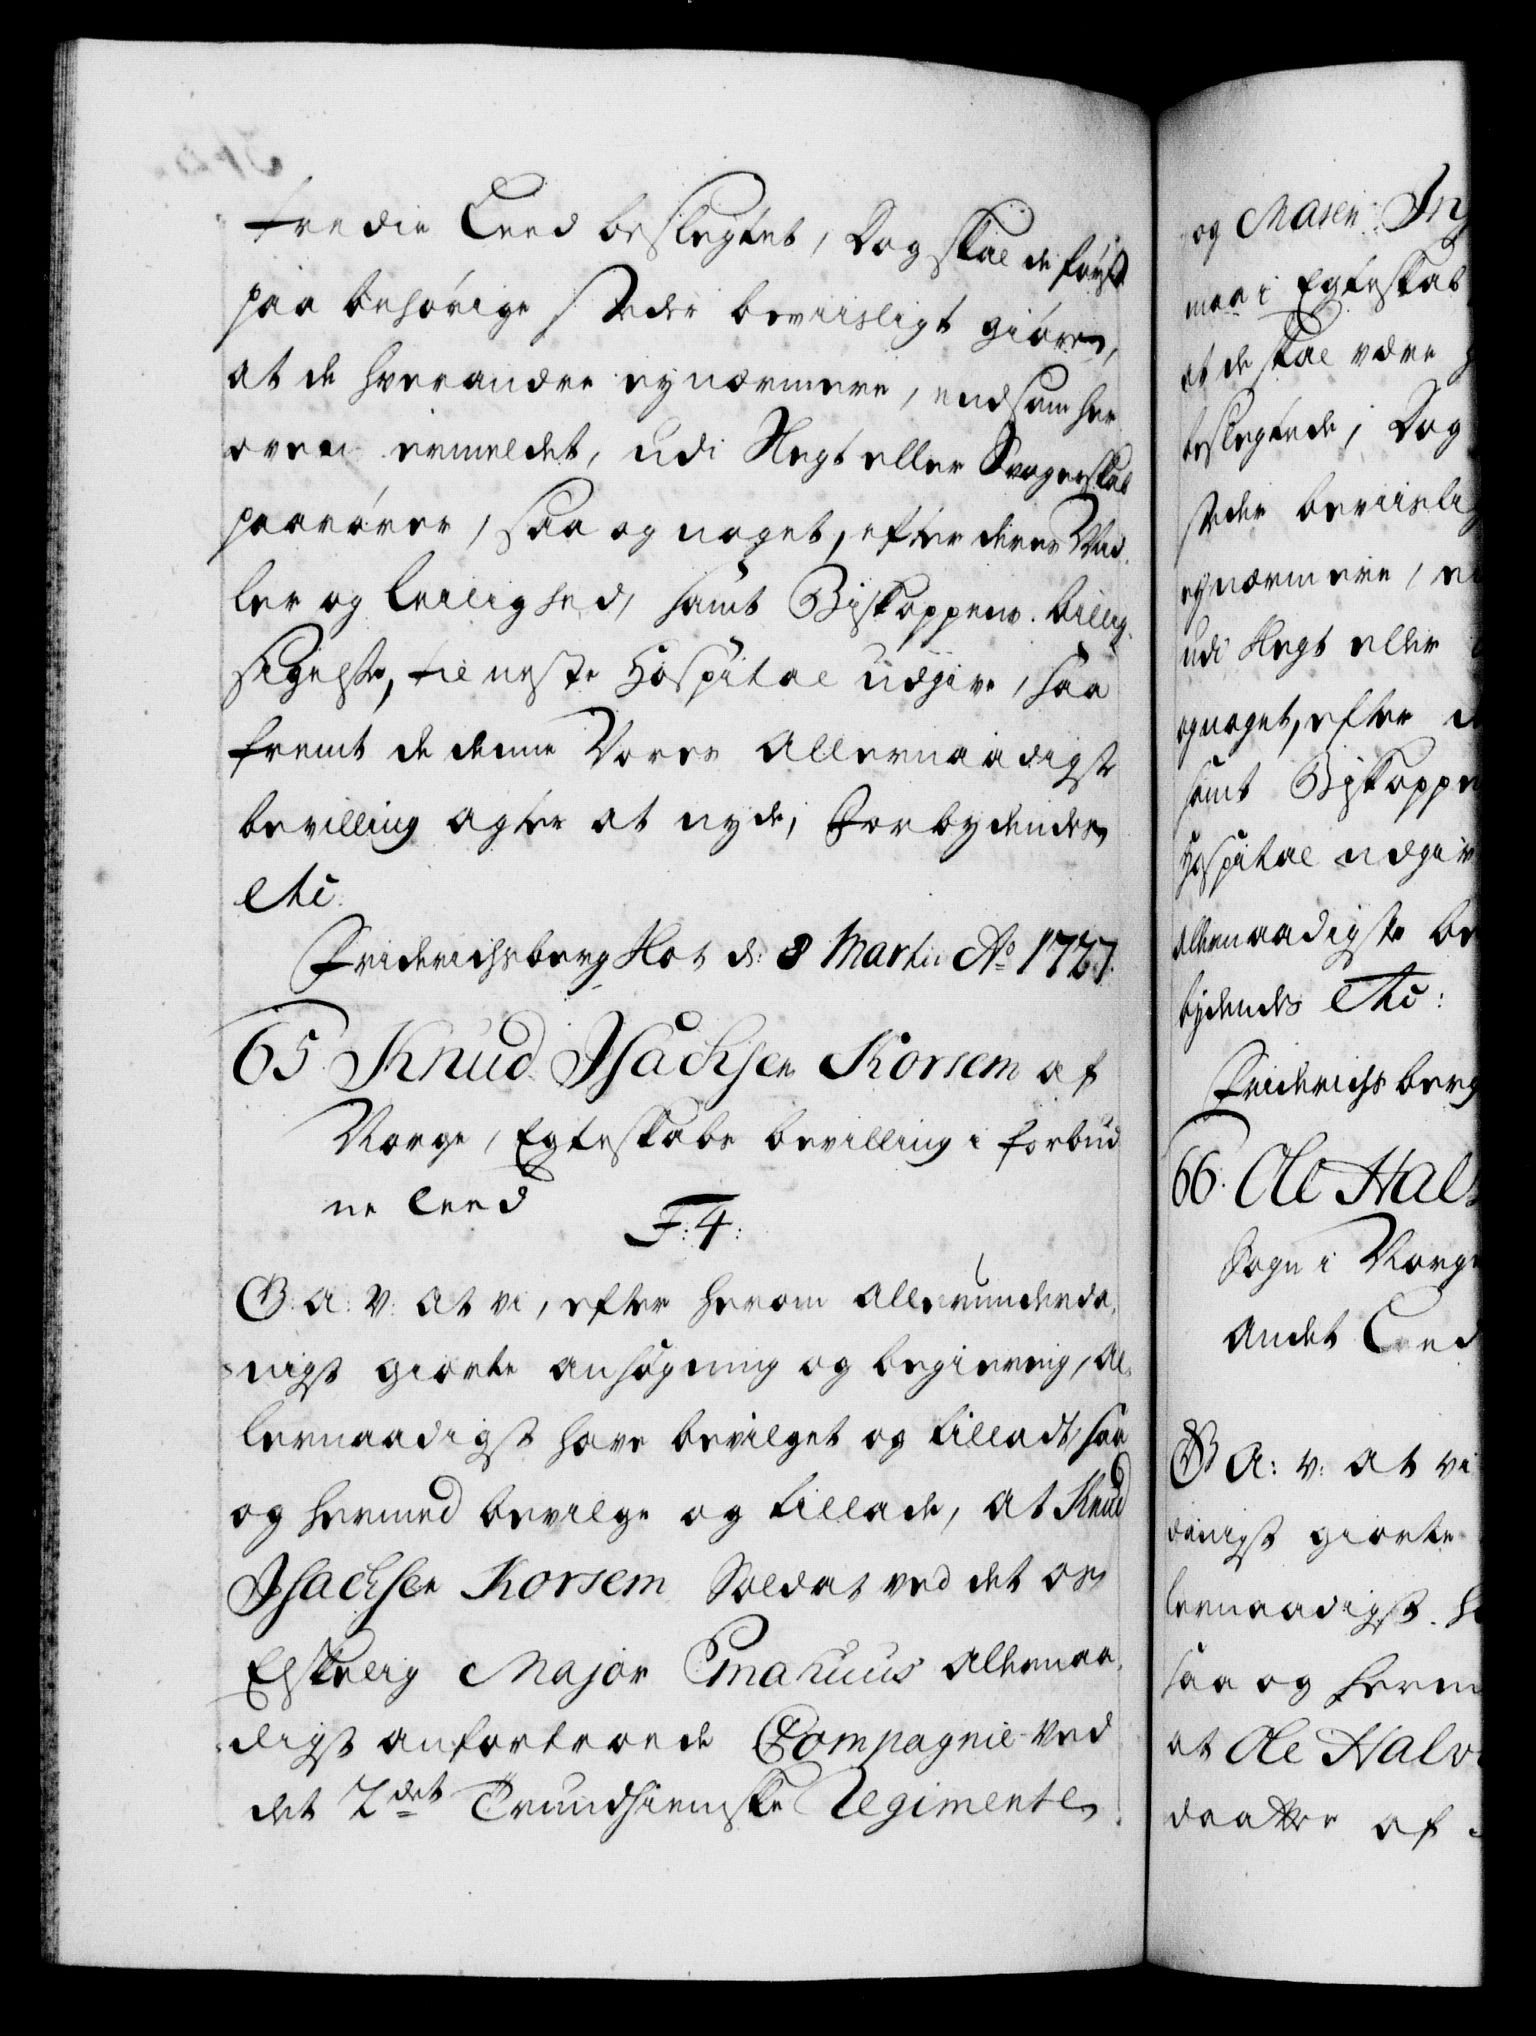 tredie Leed beslegtet, Dog skal de først
paa behörige steder beviisligt giöres,
at de hverandre ey nærmere, end som her
oven ermeldet, udi Slegt eller Svogerskab
paarörer, saa og noget, efter deres Mid¬
ler og Leilighed, samt Biskoppens billig¬
sigelse, til neste Hospital udgive, saa
fremt de denne Vores Allernaadigste
bevilling agter at nyde, Forbydendes
etc.
Friderichsberg Slot d: 8 Martii Ao 1727.
65. Knud Isachsen Korsem af
Norge, Egteskabs bevilling i forbud
ne Leed
F: 4:
G: A: V: at vi, efter herom allerunderda¬
nigst giorte ansøgning og begiering, Al¬
lernaadigst have bevilget og tilladt, saa
og hermed bevilge og tillade, at Knud
Isachsen Korsem Soldat ved det os
Elskelig Major Emahuus allernaa¬
digst anfortroede Compagnie ved
det 2det Trundhiemske Regimente,
og Maren
maa i Egteskab
at de skal være
beslegtede, Dog
steder beviislig
ey nærmere,
udi Slegt eller
og noget, efter
samt Biskoppen
Hospital udgiv
Allernaadigste be
bydendes etc:
Friderichsberg
66. Ole Hal
Sogn i Norge
andet Leed
G A: V: at vi
danigst giorte
lernaadigst
saa og herm
at Ole Halv
daatter af